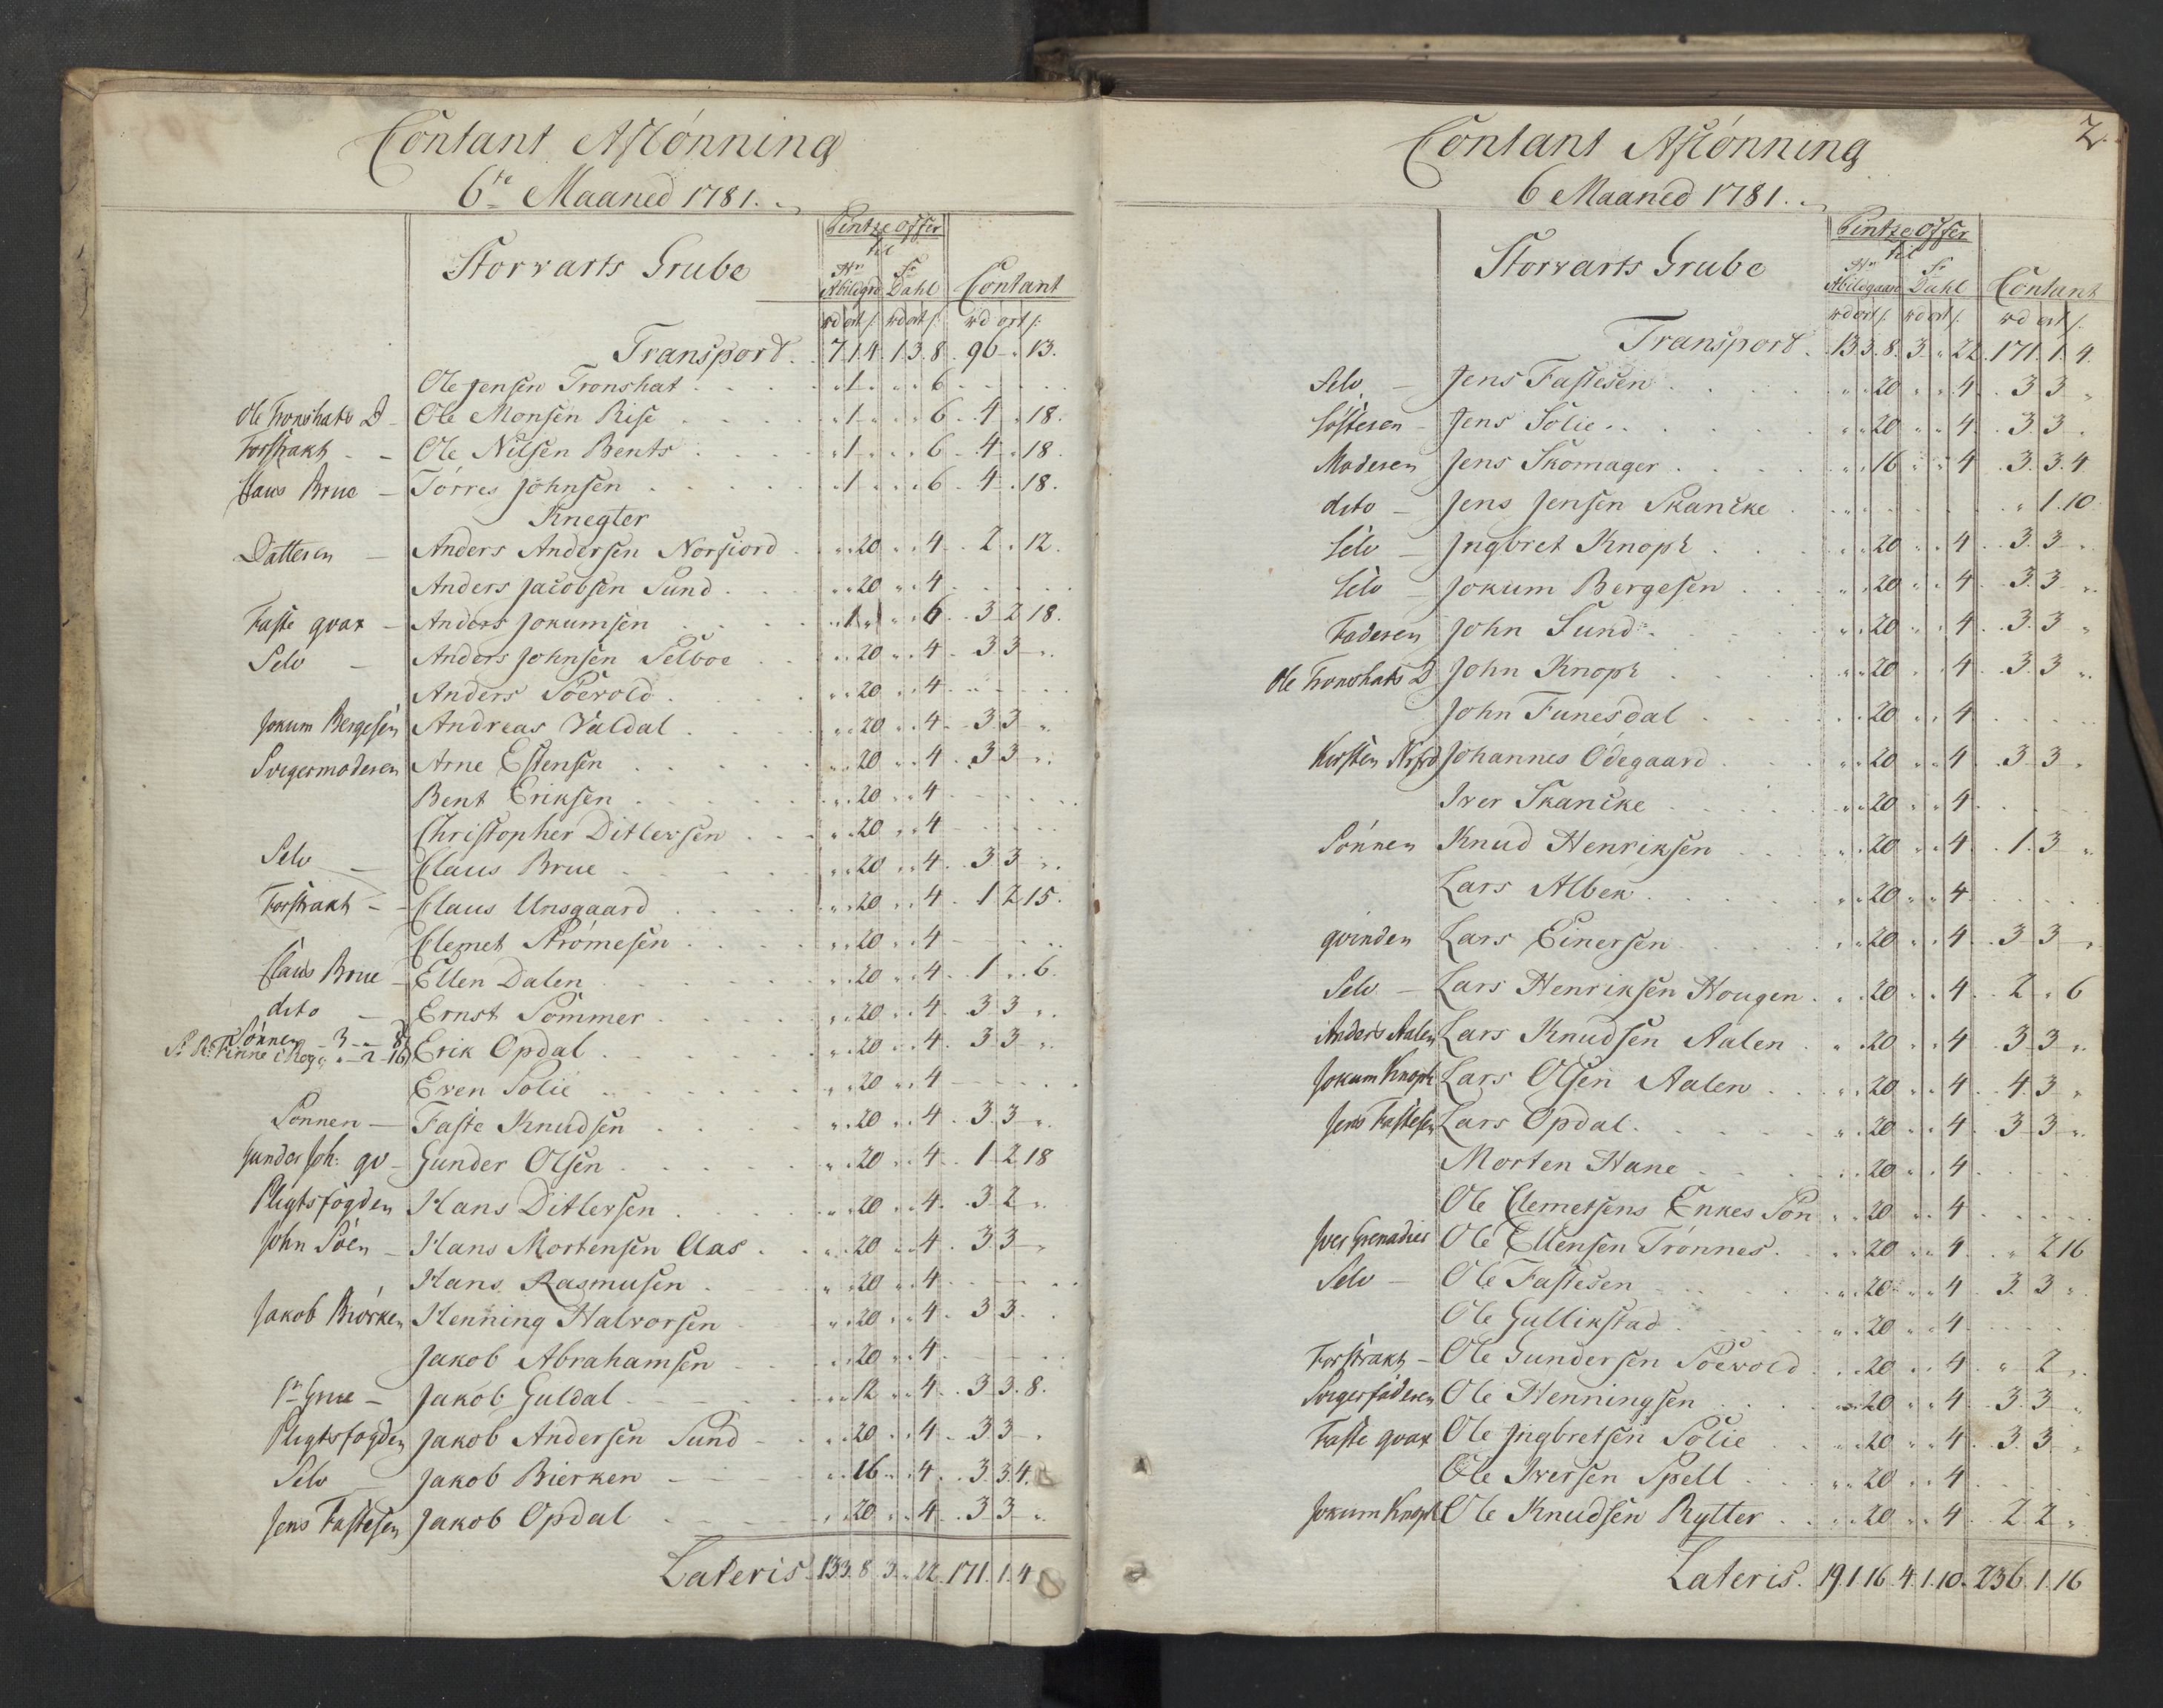 Contant Aflónning
6te Maaned 1781.
Storvarts Grube
Pintze Offer
til
Hr Sr
Abildgrd Dahl Contant
rd ort /: rd ort /: rd ort /:
Transport. 7 1 4 1 3 8 96 " 13.
Ole Jensen Tronshat " 1 " " " 6
Ole Tronshats D - Ole Monsen Rise " 1 " " " 6 4 " 18.
Forstrakt - Ole Nilsen Bents " 1 " " " 6 4 " 18.
Claus Brue - Törres Johnsen " 1 " " " 6 4 " 18.
Knegter
Datteren - Anders Andersen Norfiord " " 20 " " 4 2 " 12.
Anders Jacobsen Sund " " 20 " " 4
Faste qvax - Anders Jokumsen " 1 " " " 6 3 2 18.
Selv - Anders Johnsen Selboe " " 20 " " 4 3 3 "
Anders Söevold " " 20 " " 4
Jokum Bergesen Andreas Valdal " " 20 " " 4 3 3 "
Svigermoderen Arne Estensen " " 20 " " 4 3 3 "
Bent Eriksen " " 20 " " 4
Christopher Ditlevsen " " 20 " " 4
Selv - Claus Brue " " 20 " " 4 3 3 "
Forstrakt - Claus Unsgaard " " 20 " " 4 1 2 15.
Clemet Strömesen " " 20 " " 4
Claus Brue - Ellen Dalen " " 20 " " 4 1 " 6.
dito - Ernst Sommer " " 20 " " 4 3 3 "
Sönnen - 3 " 8
Sr R: Finne i Reg: " 2 16 Erik Opdal " " 20 " " 4 3 3 "
Even Solie " " 20 " " 4
Sönnen - Faste Knudsen " " 20 " " 4 3 3 "
Gunder Joh: qv - Gunder Olsen " " 20 " " 4 1 2 18
Pligtsfogden Hans Ditlevsen " " 20 " " 4 3 2 "
John Söen - Hans Mortensen Aas " " 20 " " 4 3 3 "
Hans Rasmusen " " 20 " " 4
Jakob Biörken Henning Halvorsen " " 20 " " 4 3 3
Jakob Abrahamsen " " 20 " " 4
Sr Grue - Jakob Guldal " " 12 " " 4 3 3 8.
Pligtsfogden Jakob Andersen Sund " " 20 " " 4 3 3 "
Selv Jakob Bierken " " 16 " " 4 3 3 4.
Jens Fastesen Jakob Opdal " " 20 " " 4 3 3 "
Lateris. 13 3 8 3 " 22 171. 1. 4
2.
Contant Aflónning
6 Maaned 1781.
Storvarts Grube
Pintze Offer
til
Hr Sr
Abildgaard Dahl Contant
rd ort /: rd ort /: rd ort /:
Transport. 13 3. 8. 3 " 22 171. 1. 4.
Selv - Jens Fastesen " " 20 " " 4 3 3 "
Sösteren - Jens Solie " " 20 " " 4 3 3 "
Moderen Jens Skomager " " 16 " " 4 3. 3. 4.
dito - Jens Jensen Skancke " 1. 10
Selv - Jngbret Knoph " " 20 " " 4 3 3 "
Selv - Jokum Bergesen " " 20 " " 4 3 3 "
Faderen John Sund " " 20 " " 4 3 3 "
Ole Tronshats D John Knoph " " 20 " " 4 3 3 "
John Funesdal " " 20 " " 4
Kersten Nrfrd Johannes Ödegaard " " 20 " " 4 3 3 "
Iver Skancke " " 20 " " 4
Sönnen Knud Henriksen " " 20 " " 4 1. 3 "
Lars Albek " " 20 " " 4
qvinden Lars Einersen " " 20 " " 4 3 3 "
Selv - Lars Henriksen Hougen " " 20 " " 4 2 " 6
Anders Aalen Lars Knudsen Aalen " " 20 " " 4 3 3 "
Jokum Knoph Lars Olsen Aalen " " 20 " " 4 4. 3 "
Jens Fastesen Lars Opdal " " 20 " " 4 3 3 "
Morten Hane " " 20 " " 4
Ole Clemetsens Enkes Sön " " 20 " " 4
Jver Grenadier Ole Ellensen Trönnes " " 20 " " 4 " 2 16
Selv - Ole Fastesen " " 20 " " 4 3. 3 "
Ole Gullikstad " " 20 " " 4
Forstrakt - Ole Gundersen Söevold " " 20 " " 4 " 2 "
Svigerfaderen Ole Henningsen " " 20 " " 4 3 3 "
Faste qvax Ole Jngbretsen Solie " " 20 " " 4 3. 3 "
Ole Iversen Spell " " 20 " " 4
Jokum Knoph Ole Knudsen Rytter " " 20 " " 4 2 2 "
Lateris. 19. 1 16 4. 1. 10. 236. 1. 16